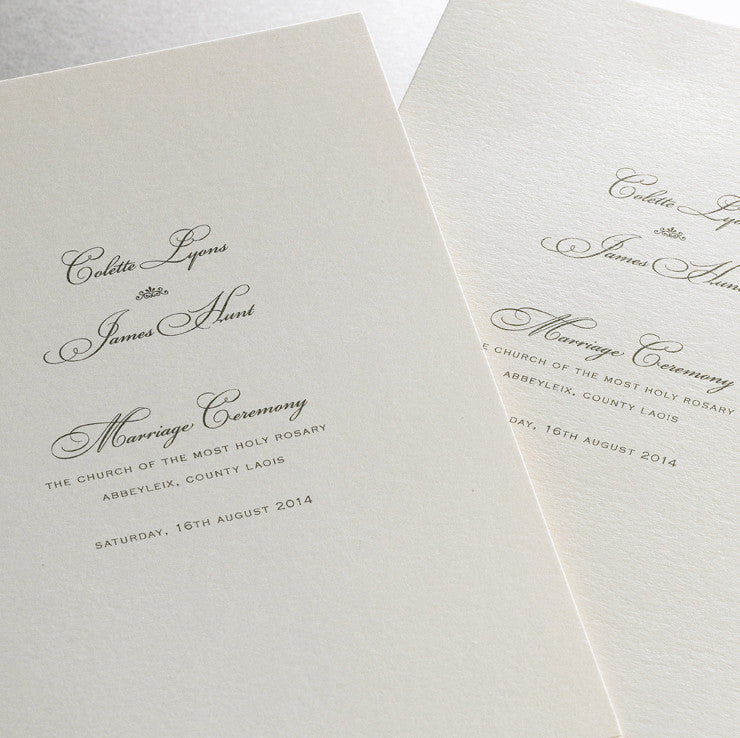 Colette Lyons
James Hunt
Marriage Ceremony
THE CHURCH OF THE MOST HOLY ROSARY
ABBEYLEIX, COUNTY LAOIS
SATURDAY, 16TH AUGUST 2014
Colette Lyo
James Hunt
Marriage Ceremony
HE CHURCH OF THE MOST HOLY ROSARY
ABBEYLEIX, COUNTY LAOIS
DAY, 16TH AUGUST 2014